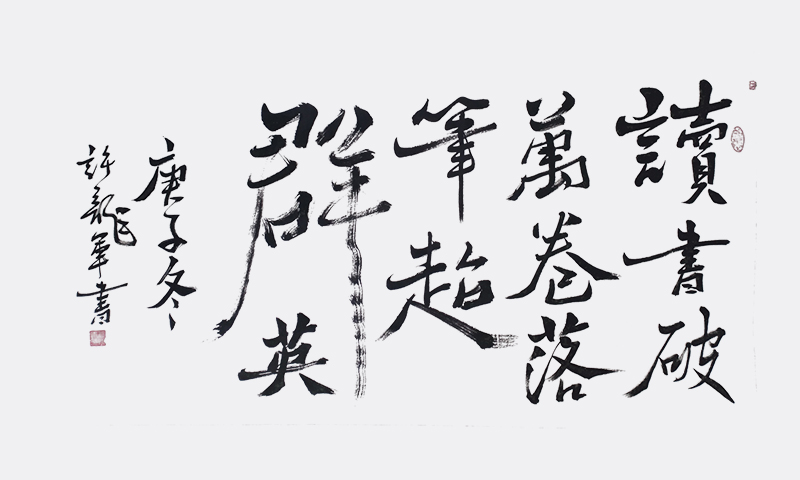 讀書破
萬卷落
筆超
群英
庚子冬
許龍軍書